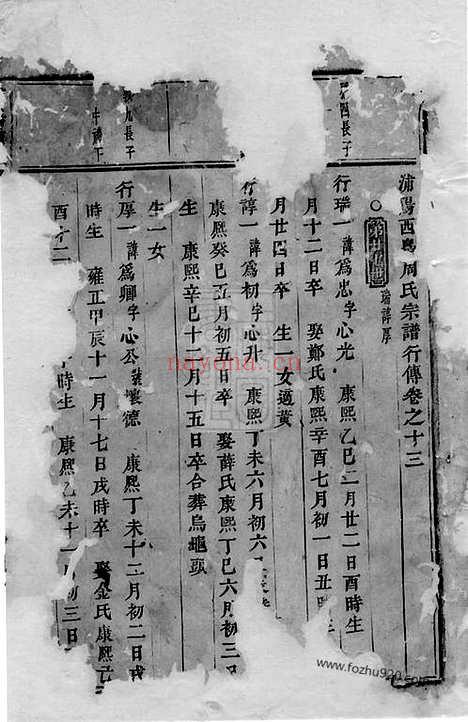 浦陽西皋周氏宗譜行傳卷之十三
瑞諄厚
行瑞一 諱爲忠字心光 康熙乙巳二月廿二日酉時生
月十二日卒 娶鄭氏康熙辛酉七月初一日丑時
月廿四日卒 生一女適黃
行諄一 諱爲初字心升 康熙丁未六月初六
康熙癸巳五月初五日卒 娶薛氏康熙丁巳六月初三日
生 康熙辛巳十一月十五日卒合葬烏龜頭
生一女
行厚一 諱爲卿字心公號懷德 康熙丁未十二月初二日戌
時生 雍正甲辰十一月十七日戌時卒 娶金氏康熙己
酉十二 時生 康熙乙未十一月初三日
四長子
九長子
www.fozhu920.com
nayona.cn